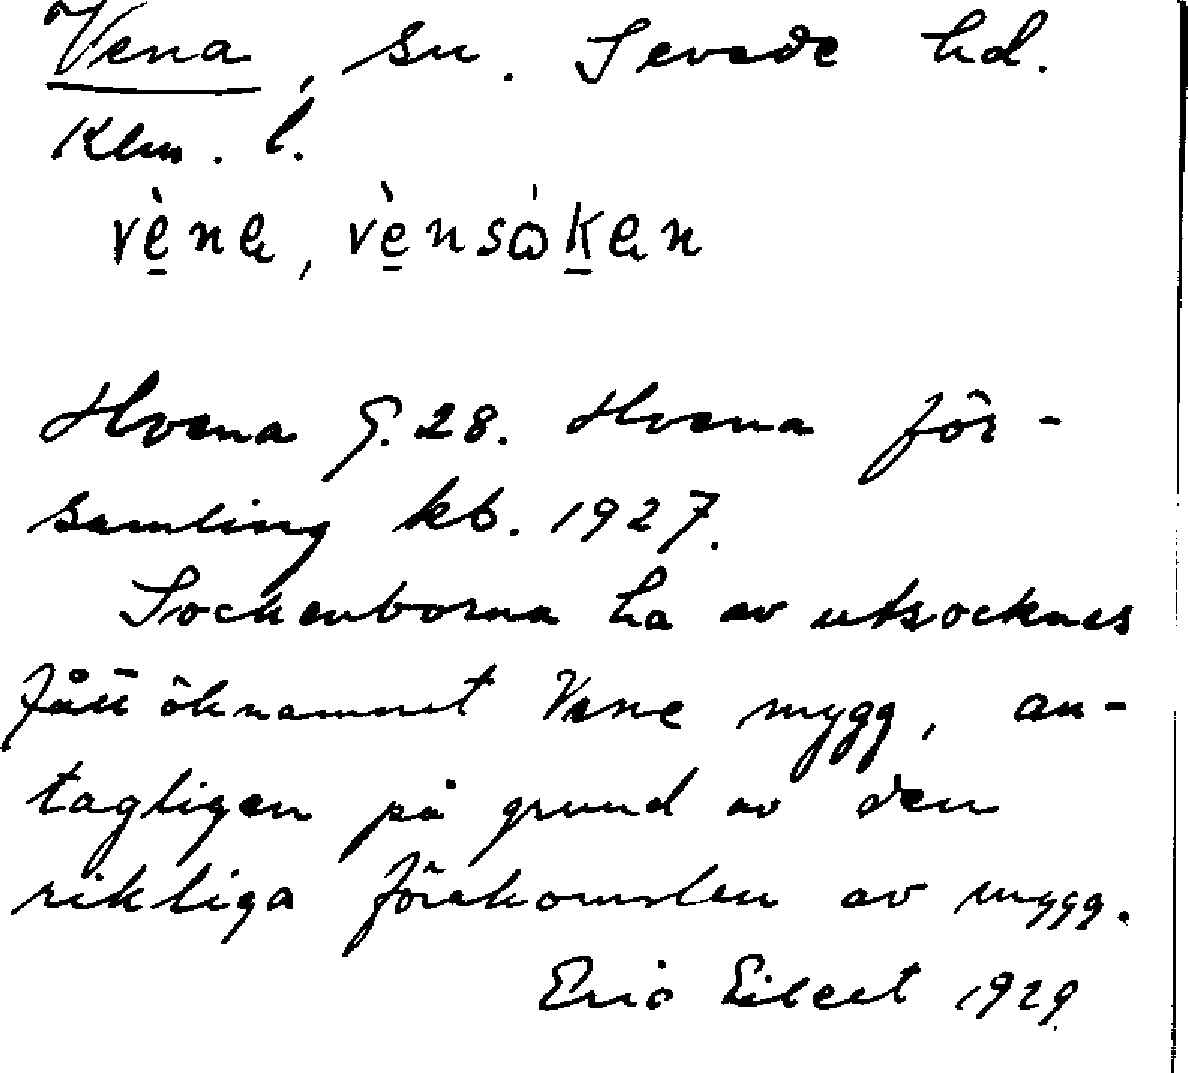 Vena, sn. Sevede hd.
Klm. l.
vè̱na, vè̱nsòḵan
Hvena G. 28. Hvena för-
samling kb. 1927.
Sockenborna ha av utsocknes
fått öknamnet Vene mygg, an-
tagligen på grund av den
rikliga förekomsten av mygg.
Eric Eilert 1929